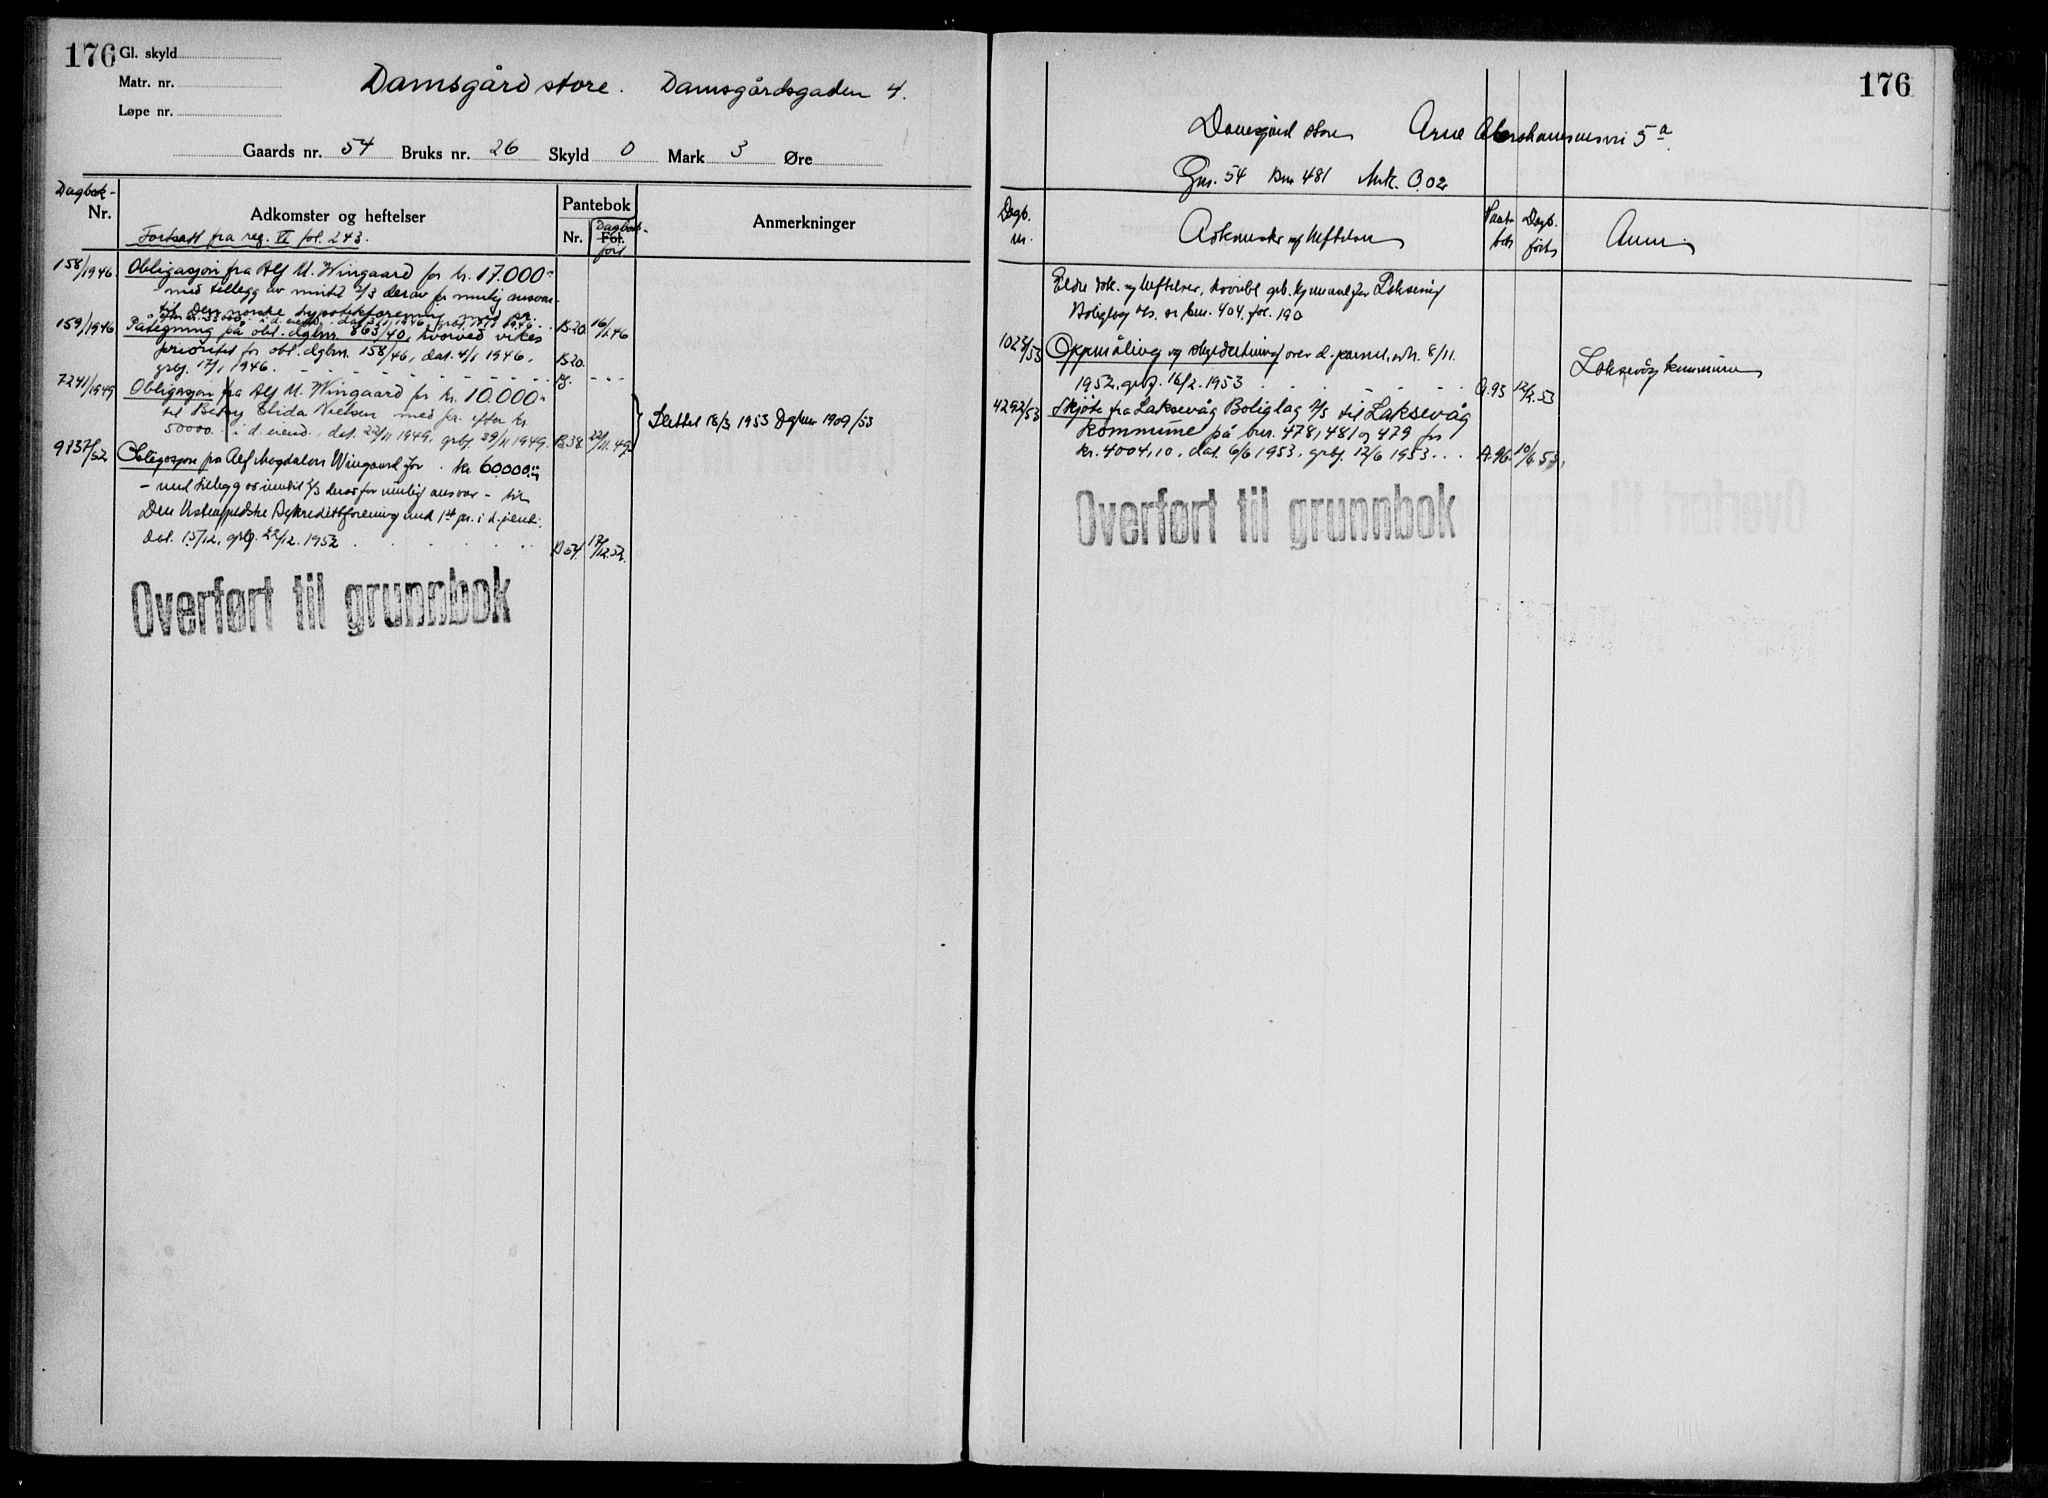 176
Gl. skyld
Matr. nr.
Løpe nr.
Damsgård store. Damsgårdsgaden 4.
Gaards nr. 54 Bruks nr. 26 Skyld 0 Mark 3 Øre
Dagbok-
Nr.
Adkomster og heftelser
Fortsatt fra reg. VI fol. 243.
Pantebok
Nr.
Fol.
Dagbok-
ført
Anmerkninger
158/1946 Obligasjon fra Alf M. Wingaard for kr. 17.000-
med tillegg av inntil 2/3 derav for mulig ansvar-
til Den norske hypotekforening med pr.
B.20. 16/1 46
159/1946 Påtegning på obl. dglnr. 863/40, hvorved vikes
prioritet for obl. dglnr. 158/46, dat. 4/1 1946,
grbj. 17/1 1946. B.20. - - -
7241/1949 Obligasjon fra Alf M. Wingaard for kr. 10.000-
til Betsy Elida Nielsen med pr. efter kr.
50000.- i d. eiend., dat. 22/11 1949, grbj. 29/11 1949. B.38. 22/11.49.
Slettet 18/3 1953 Dglnr 1909/53
9837/52 Obligasjon fra Alf Magdalon Wingaard for kr. 60000.-
- med tillegg av inntil 2/3 derav for mulig ansvar - til
Den Vestenfjeldske Bykredittforening med 1st pr. i d. eiend.
Dat. 15/12, grbj. 22/12. 1952 D 54. 17/12 52.
Overført til grunnbok
176
Damsgård store Arne Abrahamsensvei 5a
Gnr. 54 Bnr 481 Mrk. 0.02
Dagb.
nr.
Adkomster og heftelser
Pante
bok
Dagb.
ført
Anm.
Eldre dok. og heftelser, hvoribl. grb. hjemmel for Laksevåg
Boliglag A/s, se bnr. 404, fol. 190
1028/53 Oppmåling og skylddeling over d. parsel, avh. 8/11.
1952, grbj. 16/2. 1953 A.93 12/2.53
Laksevåg kommune
4292/53 Skjøte fra Laksevåg Boliglag A/S til Laksevåg
kommune på bnr. 478, 481 og 479 for
kr. 4004,10, dat. 6/6 1953, grbj. 12/6 1953 A.96. 10/6.53.
Overført til grunnbok